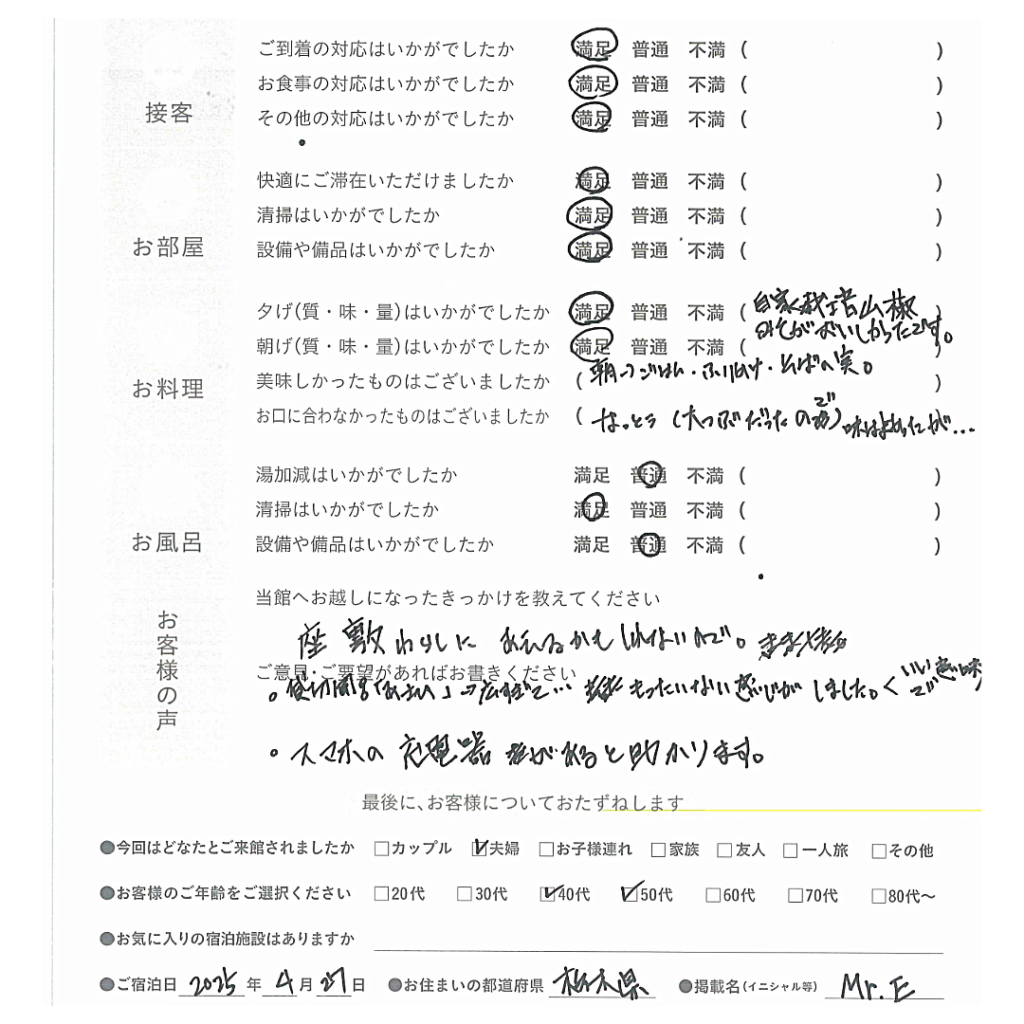 接客
ご到着の対応はいかがでしたか 満足 普通 不満 ( )
お食事の対応はいかがでしたか 満足 普通 不満 ( )
その他の対応はいかがでしたか 満足 普通 不満 ( )
お部屋
快適にご滞在いただけましたか 満足 普通 不満 ( )
清掃はいかがでしたか 満足 普通 不満 ( )
設備や備品はいかがでしたか 満足 普通 不満 ( )
お料理
夕げ(質・味・量)はいかがでしたか 満足 普通 不満 (自家栽培山椒 )
みそがおいしかったです。
朝げ(質・味・量)はいかがでしたか 満足 普通 不満 ( )
美味しかったものはございましたか (朝のごはん・ふりかけ・そばの実。 )
お口に合わなかったものはございましたか (なっとう(大つぶだったので)味はよかったが…
お風呂
湯加減はいかがでしたか 満足 普通 不満 ( )
清掃はいかがでしたか 満足 普通 不満 ( )
設備や備品はいかがでしたか 満足 普通 不満 ( )
お客様の声
当館へお越しになったきっかけを教えてください
座敷わらしに あえるかもしれないので。
ご意見・ご要望があればお書きください
広すぎて… もったいない感じがしました。くいい意味で
・スマホの充電器 があると助かります。
最後に、お客様についておたずねします
●今回はどなたとご来館されましたか □カップル ☑夫婦 □お子様連れ □家族 □友人 □一人旅 □その他
●お客様のご年齢をご選択ください □20代 □30代 ☑40代 ☑50代 □60代 □70代 □80代〜
●お気に入りの宿泊施設はありますか
●ご宿泊日 2025 年 4 月 27 日 ●お住まいの都道府県 栃木県 ●掲載名(イニシャル等) Mr. E